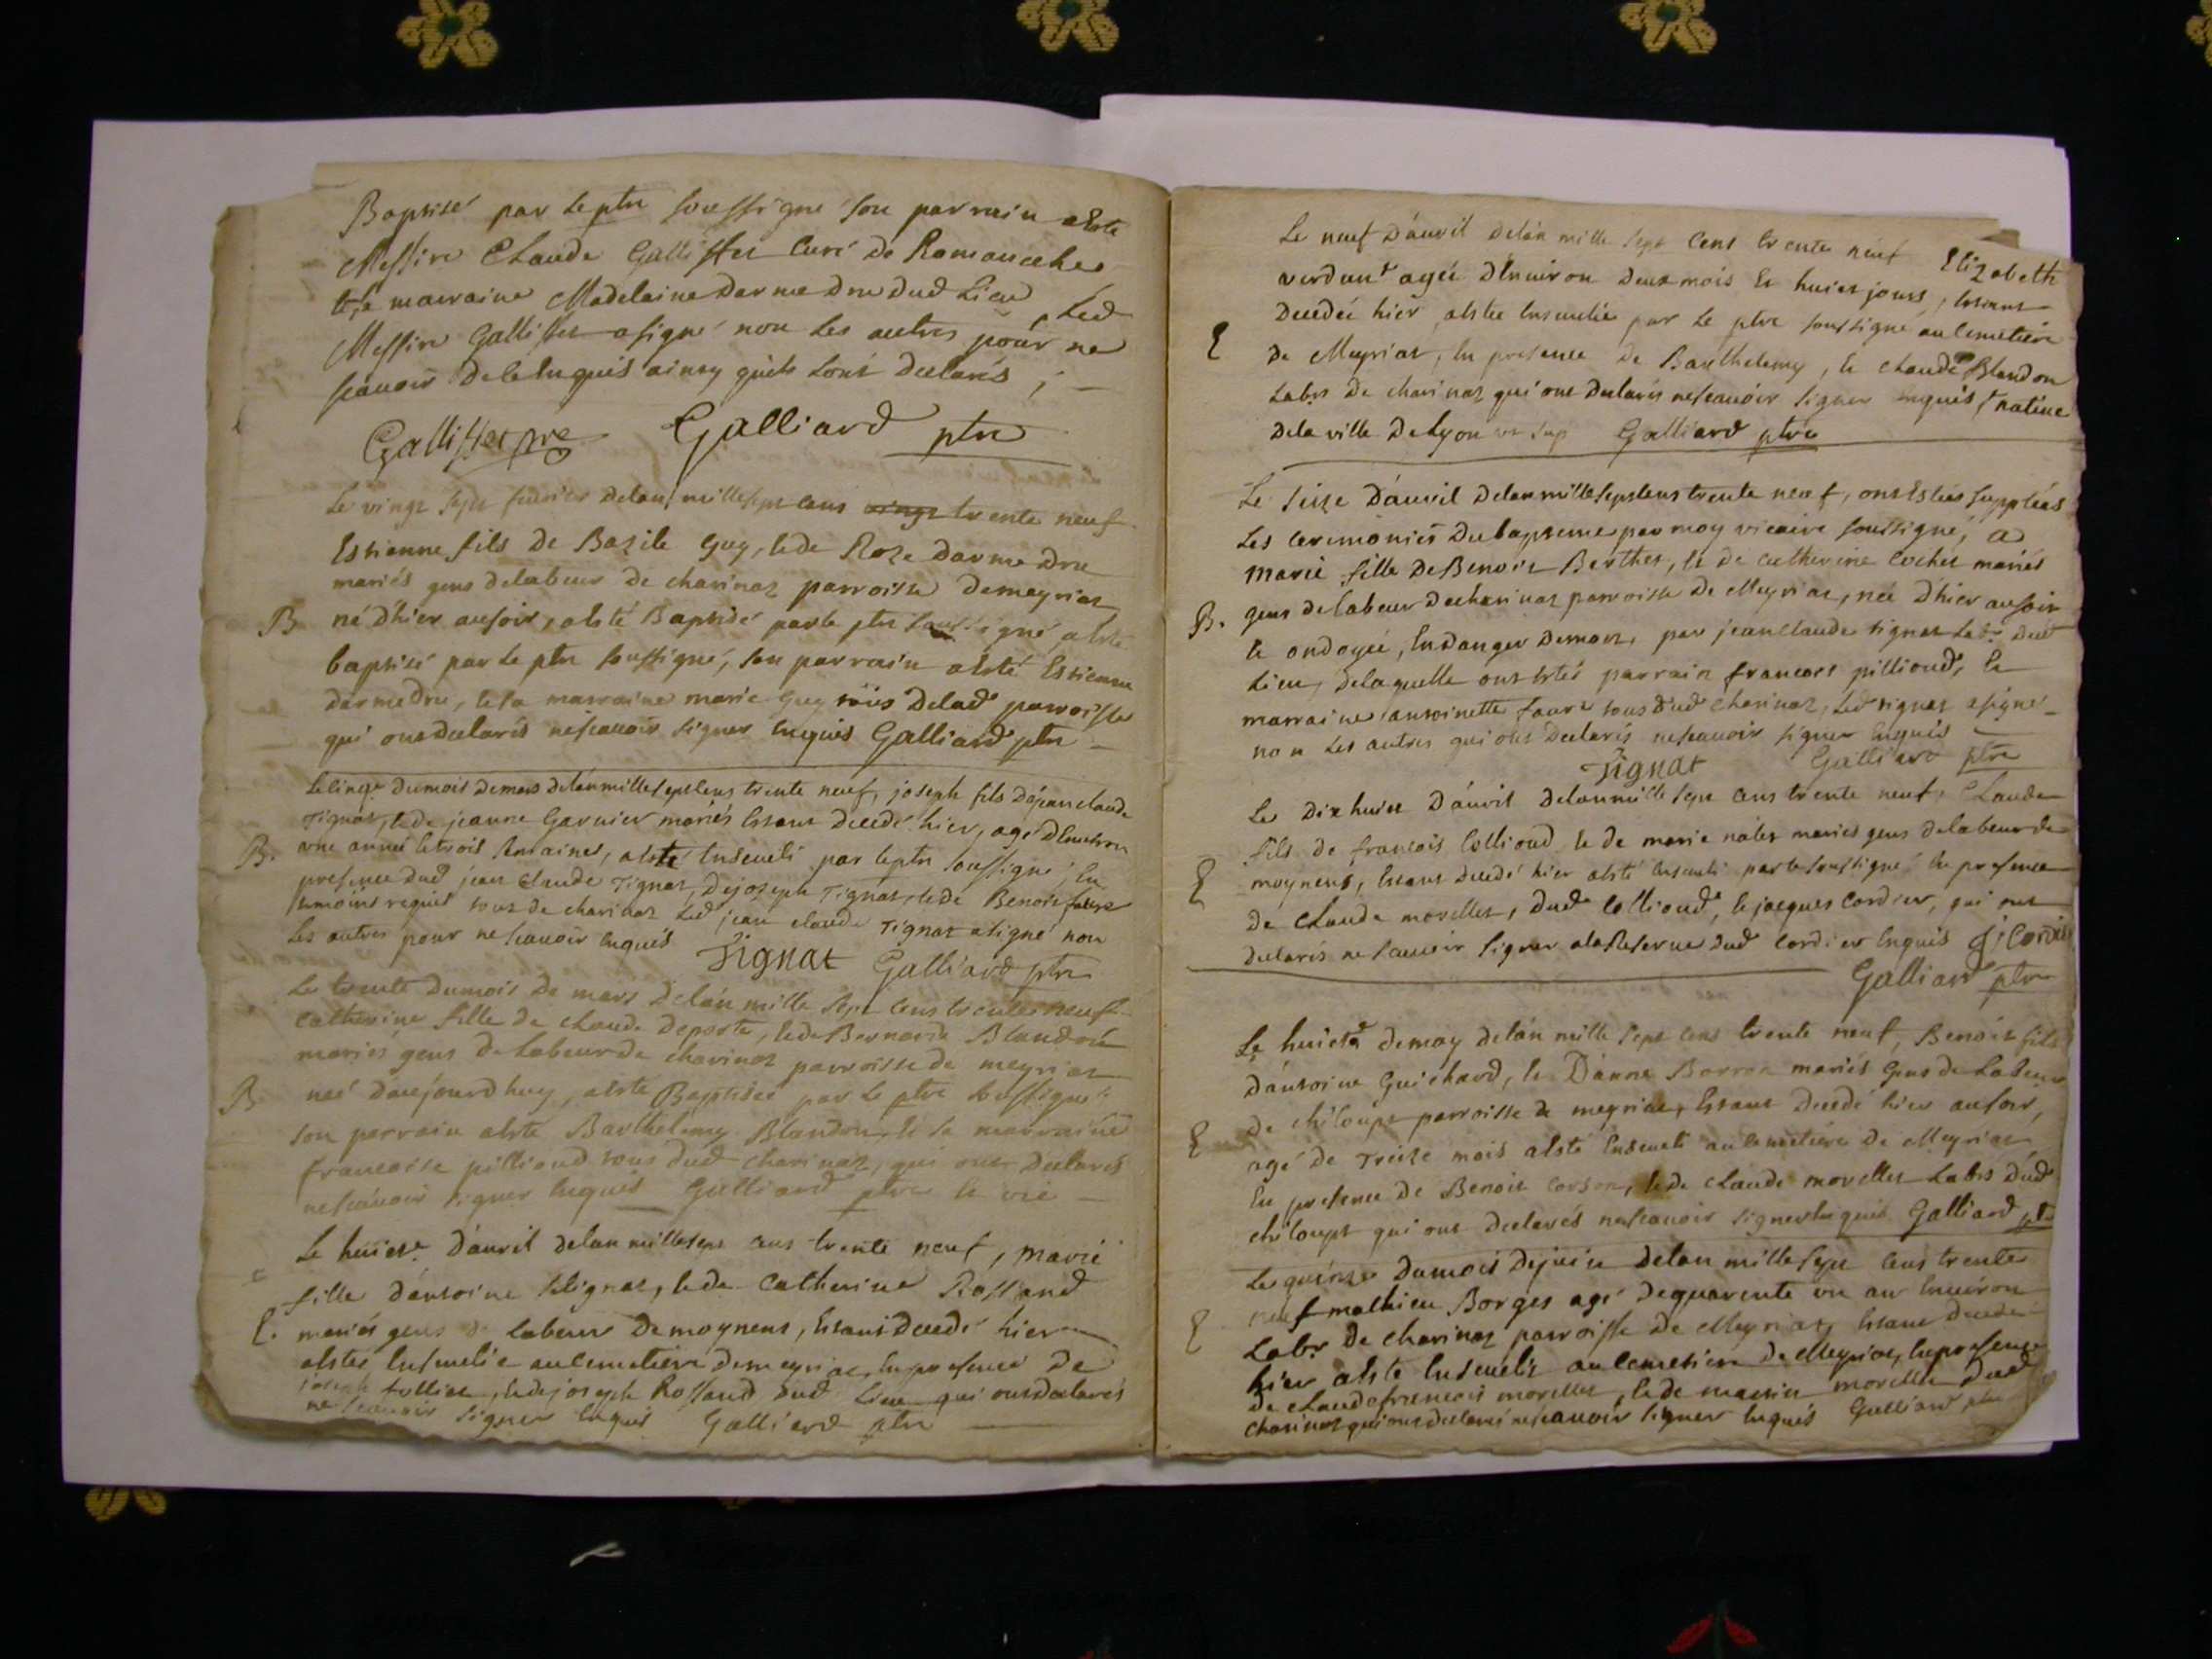 Baptisé par le ptre soussigné son parrain aesté
Messire Claude Galliffet curé de Romaneche
et sa marraine Madelaine Darmedru dud lieu led
Messire Galliffet asigné non les autres pour ne
scavoir de ce enquis ainsy quils sont declarés ;
Galliffet pre Galliard ptre
Le vingt sept fevrier delan mille sept cens vingt trente neuf
Estienne fils de Bazile Guy, et de Roze Darmedru
mariés gens delabeur de charinaz parroisse demeyriaz
B. né d'hier ausoir, aesté Baptisé par le ptre soussigné aesté
baptisé par le ptre soussigné, son parrain aesté Estienne
darmedru, et sa marraine marie Guy tous delad parroisse
qui ont declarés nescavoir signer enquis Galliard ptre
Le cinqe dumois demars delan mille sept cens trente neuf, joseph fils de jean claude
Tignat, et de jeanne Garnier mariés estant decedé hier, agé d'environ
B. une année et trois semaines, aesté enseveli par le ptre soussigné en
presence dud jean Claude Tignat, de joseph Tignat, et de Benoit faure
temoins requis tous de charinaz led jean claude Tignat asigné non
les autres pour nescavoir enquis Tignat Galliard ptre
Le trente dumois de mars delan mille sept cens trente neuf
catherine fille de claude deporte, et de Bernarde Blandon
mariés gens de labeur de charinaz parroisse de meyriat
B. née d'aujourdhuy, aesté Baptisée par le ptre soussigné
son parrain aesté Barthelemy Blandon et sa marraine
francoise pillioud tous dud charinaz, qui ont declarés
nescavoir signer enquis Galliard ptre et vic
Le huicte d'avril delan mille sept cens trente neuf, marie
fille d'antoine Tignat, et de catherine Rossand
E. mariés gens de labeur de moynens, estant decedé hier
aestée ensevelie au cemetiere demeyriat, en presence de
joseph tollier, et de joseph Rossand dud lieu qui ont declarés
ne scavoir signer enquis Galliard ptre
Le neuf d'avril delan mille sept cens trente neuf Elizabeth
verdant agée d'environ deux mois et huict jours, estant
decedée hier aestée ensevelie par le ptre soussigné au cemetiere
E de Meyriat, en presence de Barthelemy, et claude Blandon
labrs de charinaz qui ont declarés nescavoir signer enquis native
dela ville de Lyon ut sup Galliard ptre
Le seize d'avril delan mille sept cens trente neuf, ont estées suppleés
les ceremonies du bapteme par moy vicaire soussigné, a
marie fille de Benoit Berthet, et de catherine Cochet mariés
B. gens de labeur de charinaz parroisse de Meyriat, née d'hier ausoir
et ondoyée, en danger demort, par jean claude tignat labr dud
lieu, delaquelle ont estés parrain francois pillioud, et
marraine antoinette faure tous dud charinaz, led tignat asigné
non les autres qui ont declarés nescavoir signer enquis
Tignat Galliard ptre
Le dix huict d'avril delan mille sept cens trente neuf, Claude
fils de francois Collioud et de marie nalet mariés gens delabeur de
E moynens, estant decedé hier aesté enseveli par le soussigné en presence
de claude morellet, dud Collioud, et jacques Cordier, qui ont
declarés nescavoir signer ala Reserve dud cordier enquis j Cordier
Galliard ptre
Le huicte demay delan mille sept cens trente neuf, Benoit fils
d'antoine Guichard, et D'anne Borron mariés gens de Labeur
de chiloupt parroisse de meyriat, estant decedé hier ausoir,
E agé de treize mois aesté enseveli au cemetiere de Meyriat
en presence de Benoit Corson, et de claude morellet labrs dud
chiloupt qui ont declarés nescavoir signer enquis Galliard ptre
Le quinze dumois de juin delan mille sept cens trente
E neuf mathieu Borges agé dequarente un an environ
Labr de charinaz parroisse de Meyriat, estant decedé
hier aesté enseveli au cemetiere de Meyriat, en presence
de claude francois morellet, et de morellet dud
charinaz qui ont declarés nescavoir signer enquis Galliard ptre